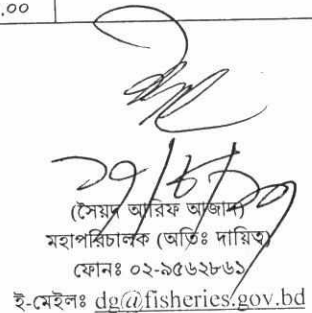 .০০
(সৈয়দ আরিফ আজাদ)
মহাপরিচালক (অতিঃ দায়িত্ব)
ফোনঃ ০২-৯৫৬২৮৬১
ই-মেইলঃ dg@fisheries.gov.bd